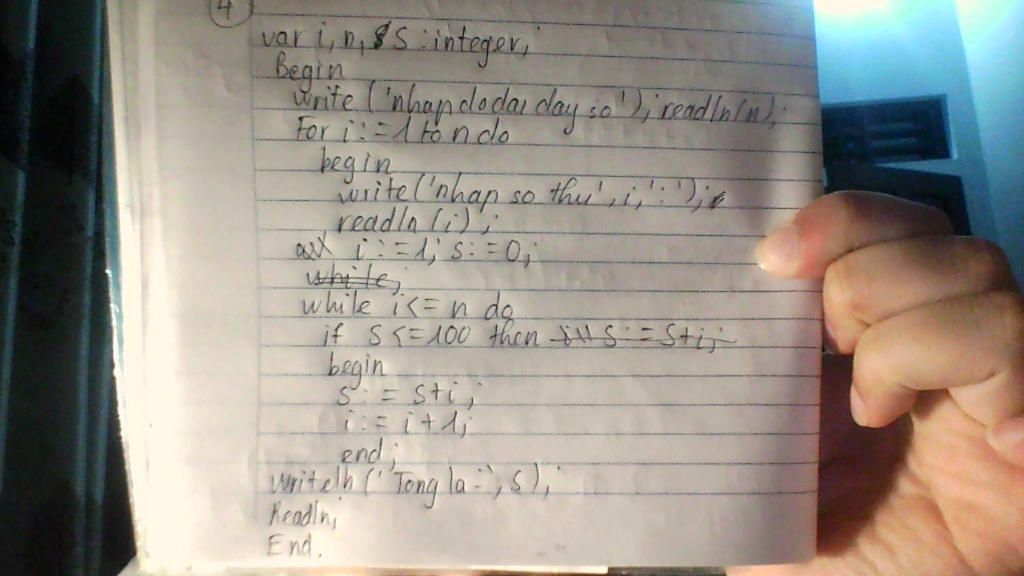 4
var i, n, S : integer;
Begin
write ('nhap do dai day so'); readln(n);
For i := 1 to n do
begin
write('nhap so thu', i, ':');
readln (i);
i := 1; s := 0;
while;
while i <= n do
if s <= 100 then s := s+i;
begin
s := s+i;
i := i+1;
end;
Writeln ('Tong la :', s);
Readln;
End.